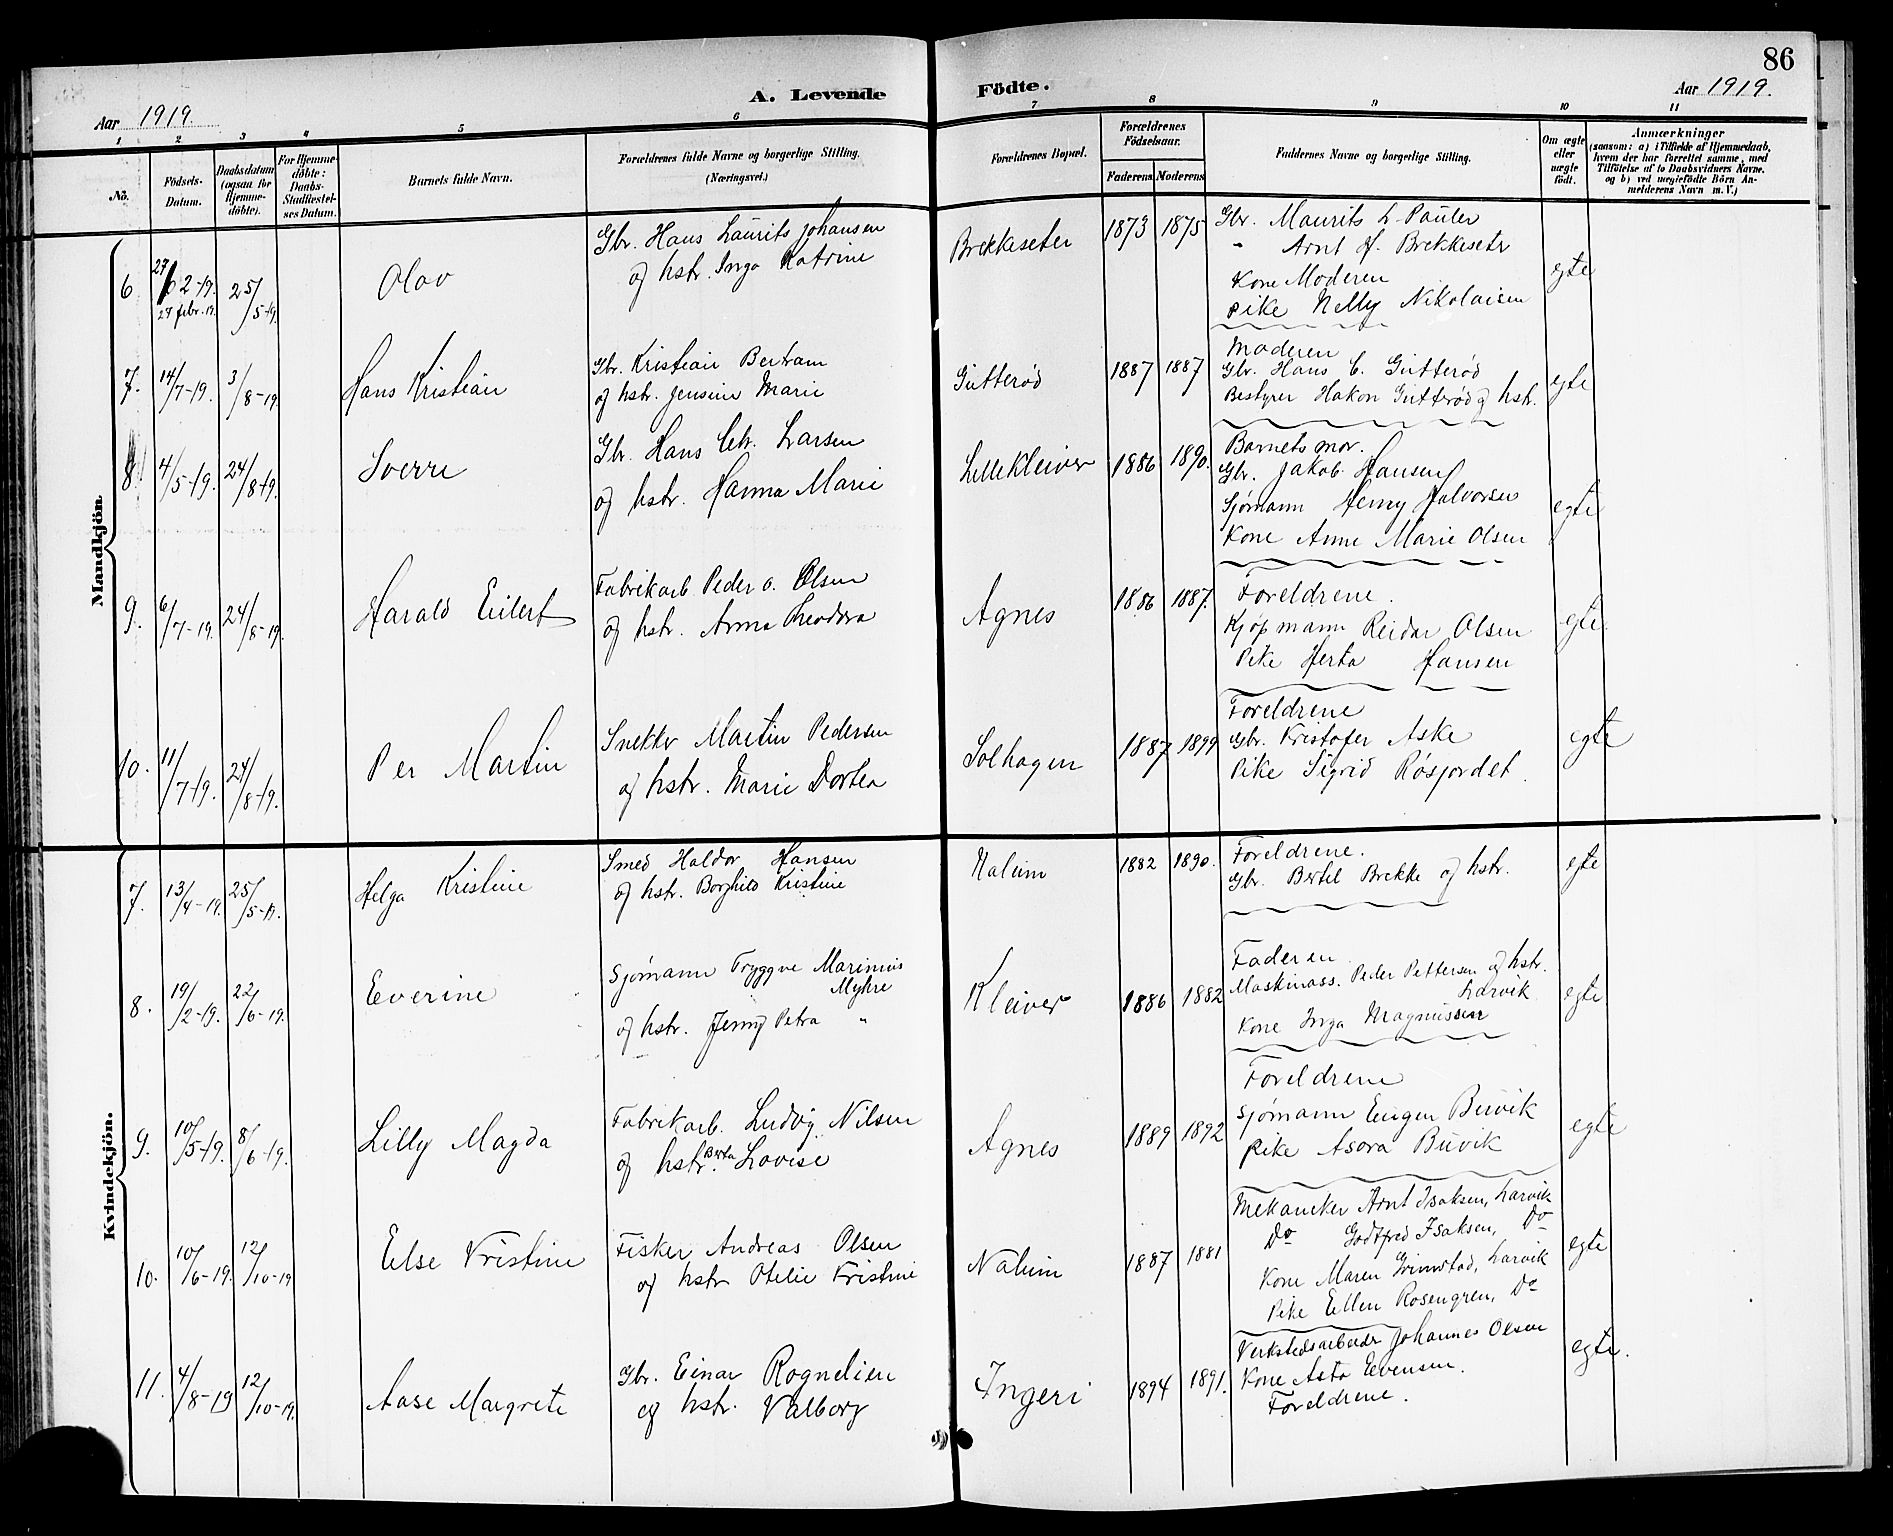 86
Aar 1919.
A. Levende Födte.
Aar 1919.
1 2 3 4 5 6 7 8 9 10 11
No.
Födsels-
Datum.
Daabsdatum
(ogsaa for
Hjemme-
döbte).
For Hjemme-
döbte:
Daabs-
Stadfæstel-
ses Datum.
Barnets fulde Navn.
Forældrenes fulde Navne og borgerlige Stilling.
(Næringsvei.)
Forældrenes Bopæl.
Forældrenes
Födselsaar.
Faderens. Moderens.
Faddernes Navne og borgerlige Stilling.
Om ægte
eller
uægte
födt.
Anmærkninger
(saasom: a) i Tilfælde af Hjemmedaab,
hvem der har forrettet samme, med
Tilföielse af to Daabsvidners Navne.
og b) ved uægtefödte Börn An-
melderens Navn m. V.)
Mandkjön
6
2-19.
27 febr. 19.
25/5-19.
Olav
Gbr. Hans Laurits Johansen
og hstr. Inga Katrine
Brekkeseter
1873 1875
Gbr. Maurits L. Pauler
" Arnt H. Brekkeseter
Kone Moderen
Pike Nelly Nikolaisen
egte
7.
14/7-19.
3/8-19
Hans Kristian
Gbr. Kristian Bertram
og hstr. Jensine Marie
Gutterød
1887 1887
Moderen
Gbr. Hans C. Gutterød
Bestyrer Hakon Gutterød og hstr.
egte
8
4/5-19.
24/8-19.
Sverre
Gbr. Hans Chr. Larsen
og hstr. Hanna Marie
Lille Kleiver
1886 1890.
Barnets mor.
Gbr. Jakob Hansen
Sjømann Henry Halvorsen
Kone Anne Marie Olsen
egte
9.
6/7-19.
24/8-19.
Harald Eilert
Fabrikarb. Peder O. Olsen
og hstr. Anna Theodora
Agnes
1886 1887.
Foreldrene.
Kjøpmann Reidar Olsen
Pike Herta Hansen
egte.
10.
11/7-19.
24/8-19.
Per Martin
Snekker Martin Pedersen
og hstr. Marie Dortea
Solhagen
1887 1899
Foreldrene
Gbr. Kristofer Aske
Pike Sigrid Røsjordet.
egte
Kvindekjön.
7.
13/4-19.
25/5-19.
Helga Kristine
Smed Haldor Hansen
og hstr. Borghild Kristine
Nalum
1882 1890.
Foreldrene.
Gbr. Bertel Brekke og hstr.
egte
8.
19/2-19.
22/6-19.
Everine
Sjømann Tryggve Marinius
Myhre
og hstr. Jenny Petra "
Kleiver
1886 1882
Faderen
Maskinass. Peder Pettersen og hstr.
Larvik
Kone Inga Magnussen
egte
9.
10/5-19.
8/6-19.
Lilly Magda
Fabrikarb. Ludvig Nilsen
og hstr. Berta Lovise
Agnes
1889 1892
Foreldrene
Sjømann Eugen Buvik
Pike Asora Buvik
egte
10.
10/6-19.
12/10-19
Else Kristine
Fisker Andreas Olsen
og hstr Otelie Kristine
Nalum
1887 1881
Mekaniker Arnt Isaksen, Larvik
Do Godtfred Isaksen, Do
Kone Maren Grimstad, Larvik
Pike Ellen Rosengren, Do
egte
11.
4/8-19
12/10-19.
Aase Margrete
Gbr. Einar Rognlien
og hstr. Valborg
Ingeri
1894 1891.
Verkstedsarbeider Johannes Olsen
Kone Asta Evensen.
Foreldrene.
egte.